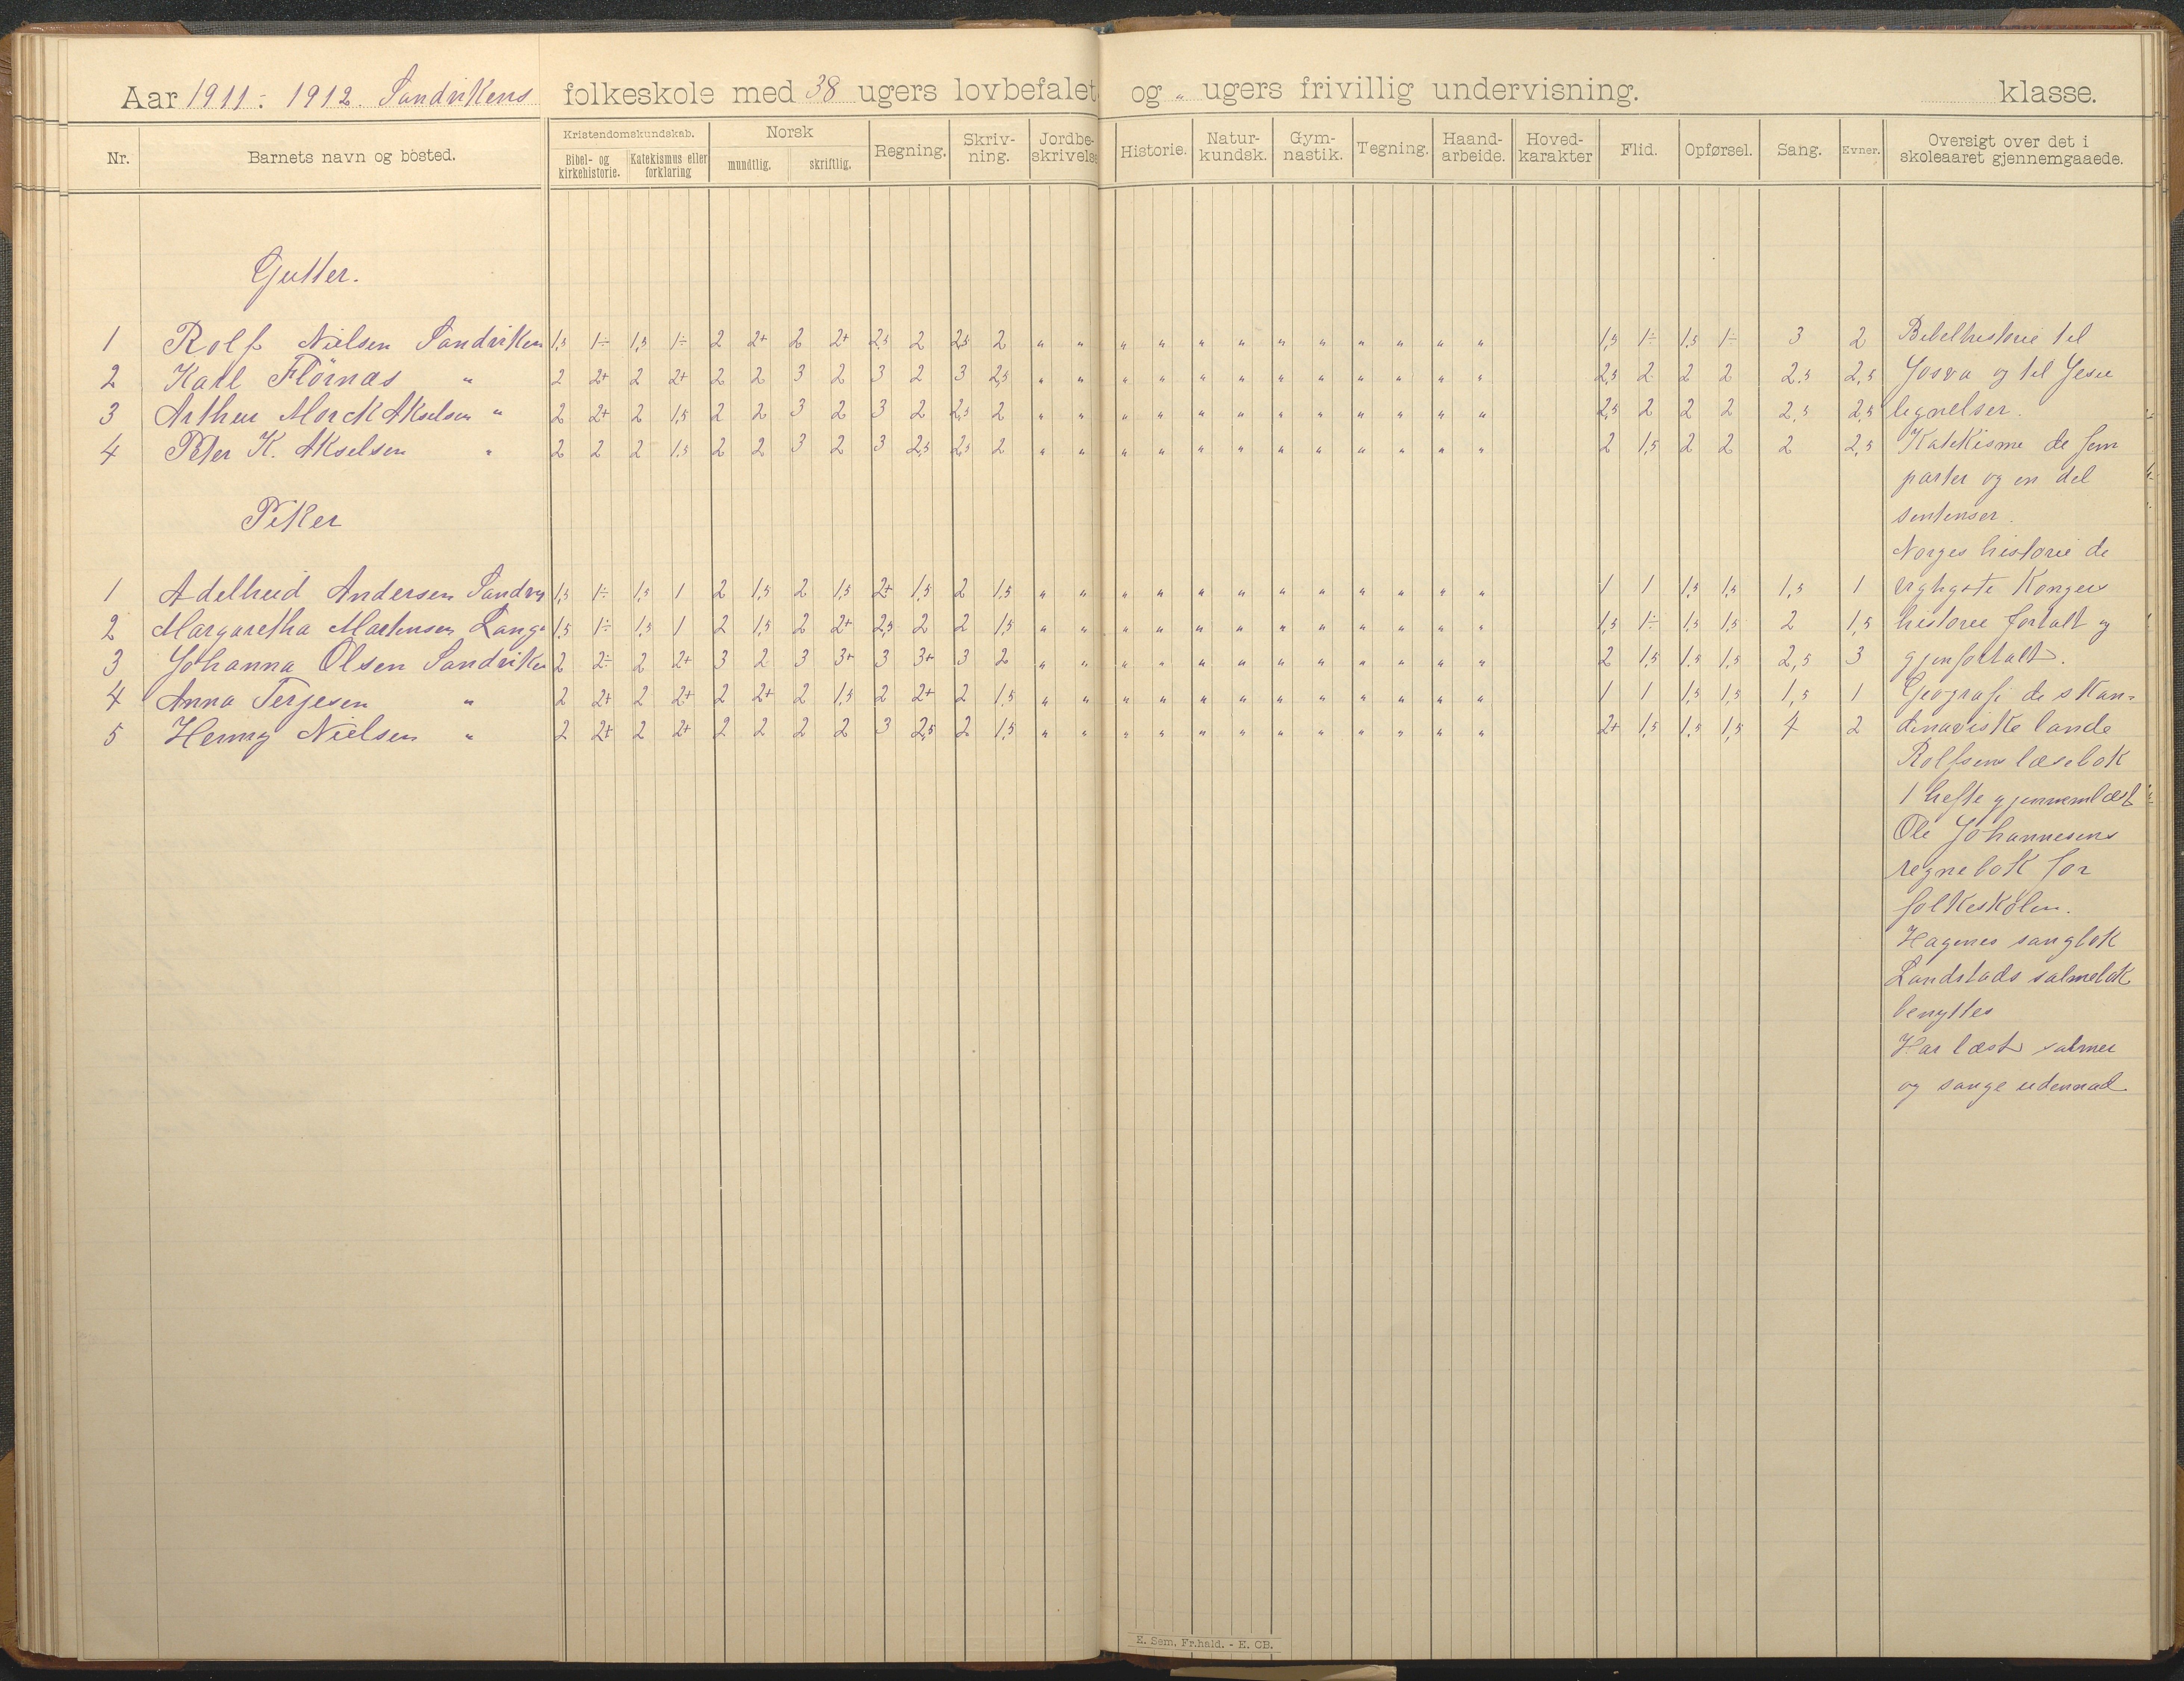 Aar 1911 - 1912. Sandvikens folkeskole med 38 ugers lovbefalet og " ugers frivillig undervisning. klasse.
Nr. Barnets navn og bosted. Kristendomskundskab. Bibel- og kirkehistorie. Katekismus eller forklaring Norsk mundtlig. skriftlig. Regning. Skriv-ning. Jordbe-skrivelse Historie. Natur-kundsk. Gym-nastik. Tegning. Haand-arbeide. Hoved-karakter Flid. Opførsel. Sang. Evner. Oversigt over det i skoleaaret gjennemgaaede.
Gutter.
1 Rolf Nielsen Sandviken 1,5 1÷ 1,5 1÷ 2 2+ 2 2+ 2,5 2 2,5 2 " " " " " " " " " " " " 1,5 1÷ 1,5 1÷ 3 2 Bibelhistorie til
2 Karl Flörnæs " 2 2+ 2 2+ 2 2 3 2 3 2 3 2,5 " " " " " " " " " " " " 2,5 2 2 2 2,5 2,5 Josva og til Jesu
3 Arthur Morck Akselsen " 2 2+ 2 1,5 2 2 3 2 3 2 2,5 2 " " " " " " " " " " " " 2,5 2 2 2 2,5 2,5 lignelser.
4 Peter K. Akselsen " 2 2 2 1,5 2 2 3 2 3 2,5 2,5 2 " " " " " " " " " " " " 2 1,5 2 2 2 2,5 Katekisme de fem
parter og en del
Piker
sentenser.
Norges historie de
1 Adelheid Andersen Sandv 1,5 1÷ 1,5 1 2 1,5 2 1,5 2+ 1,5 2 1,5 " " " " " " " " " " " " 1 1 1,5 1,5 1,5 1 Kongers
2 Margaretha Martensen Lang 1,5 1÷ 1,5 1 2 1,5 2 2+ 2,5 2 2 1,5 " " " " " " " " " " " " 1,5 1÷ 1,5 1,5 2 1,5 historie fortalt og
3 Johanna Olsen Sandviken 2 2÷ 2 2+ 3 2 3 3+ 3 3+ 3 2 " " " " " " " " " " " " 2 1,5 1,5 1,5 2,5 3 gjenfortalt.
4 Anna Terjesen " 2 2+ 2 2+ 2 2+ 2 1,5 2 2+ 2 1,5 " " " " " " " " " " " " 1 1 1,5 1,5 1,5 1 Geografi de skan-
5 Henny Nielsen " 2 2+ 2 2+ 2 2 2 2 3 2,5 2 1,5 " " " " " " " " " " " " 2+ 1,5 1,5 1,5 4 2 dinaviske lande
Rolfsens læsebok
1 hefte gjennemlæst
Ole Johannesens
regnebok for
folkeskolen.
Hagenes sangbok
Landstads salmebok
benyttes
Har læst salmer
og sange udenad
E. Sem, Fr.hald. - E. CB.